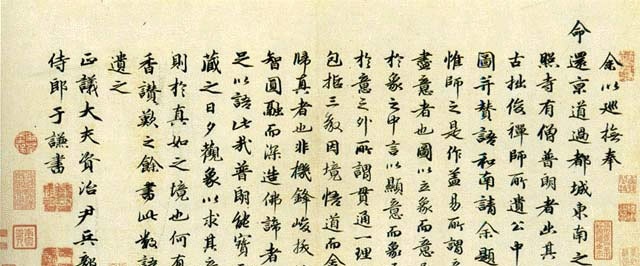 余以巡撫奉
命還京道過都城東南之
照寺有僧普朗者出其
古拙俊禪師所遺公中
圖并贊語和南請余題
惟師之是作蓋易所謂
盡意者也圖以立象而意
於象之中言以顯意而象
於意之外所謂貫通一理
包括三教因境悟道而舍
歸真者也非機鋒峻拔
智圓融而深造佛諦者
足以語此我普朗能寶
藏之日夕觀象以求其
則於真如之境也何有
香讚歎之餘書此數語
遺之
正議大夫資治尹兵部
侍郎于謙書